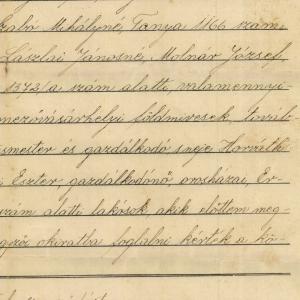 Szabó Mihályné, Tanya 1166 szám
Lászlai Jánosné, Molnár József,
1372/a szám alatti, valamennyi
mezővásárhelyi földmivesek, továb-
smester és gazdálkodó neje Horváth
Eszter, gazdálkodónő orosházai, Er-
szám alatti lakósok, akik előttem meg-
közokiratba foglalni kérték a kö-